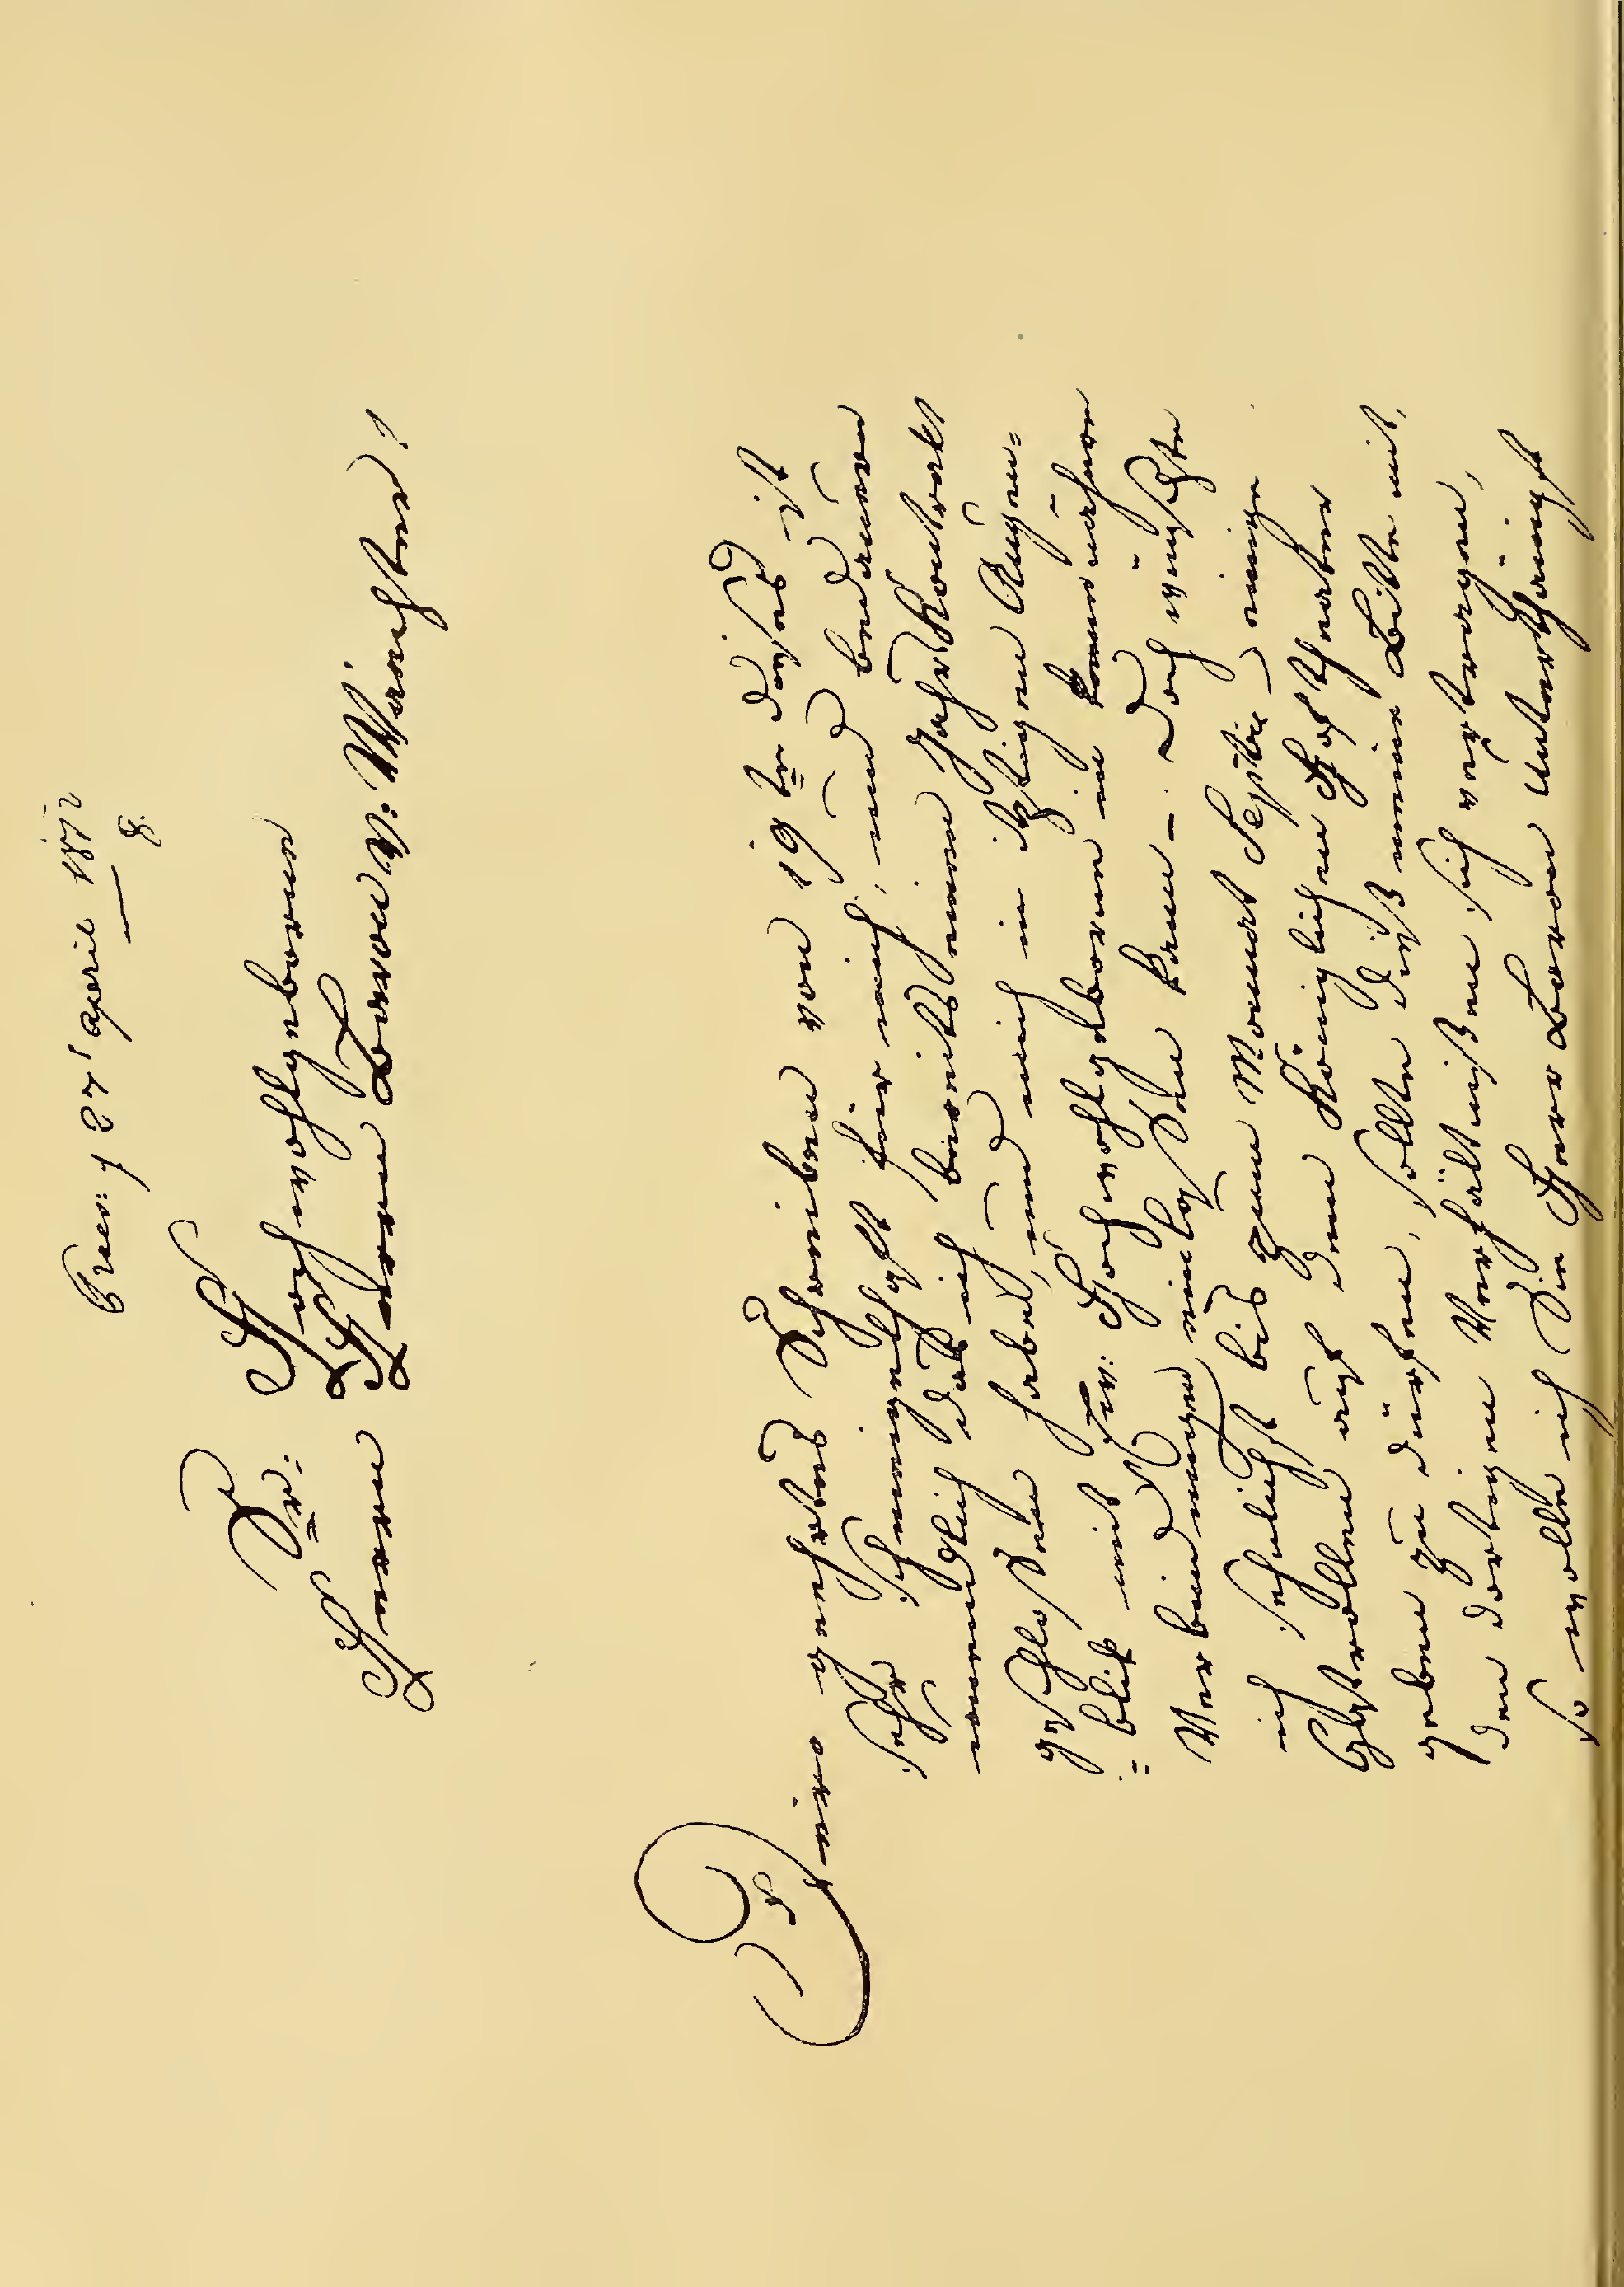 Praes: d 27t April 1812
8.
Sr: Hochwohlgeboren
Herrn Herrn Baron v: Wächter!
Dero geehrtes Schreiben von 19ten dieses ist
sehr schmeichelhaft für mich, und bedauere
unendlich daß ich bereits einen Jahr Kontrakt
geschloßen habe, und mich in itztigen Augen=
=blik mit Eu: Hochwohlgeborne in kennerische
Verbindungen einlaßen kann – doch wünschte
ich sehnlichst bis zum Monat Septbr einige
Gastrollen auf dem Königlichen Hof Theater
geben zu dürfen, sollte dieß meine Bitte mit,
den dortigen Verhältnißen sich vertragen,
so wollte ich Sie Herr Baron unterthänigst